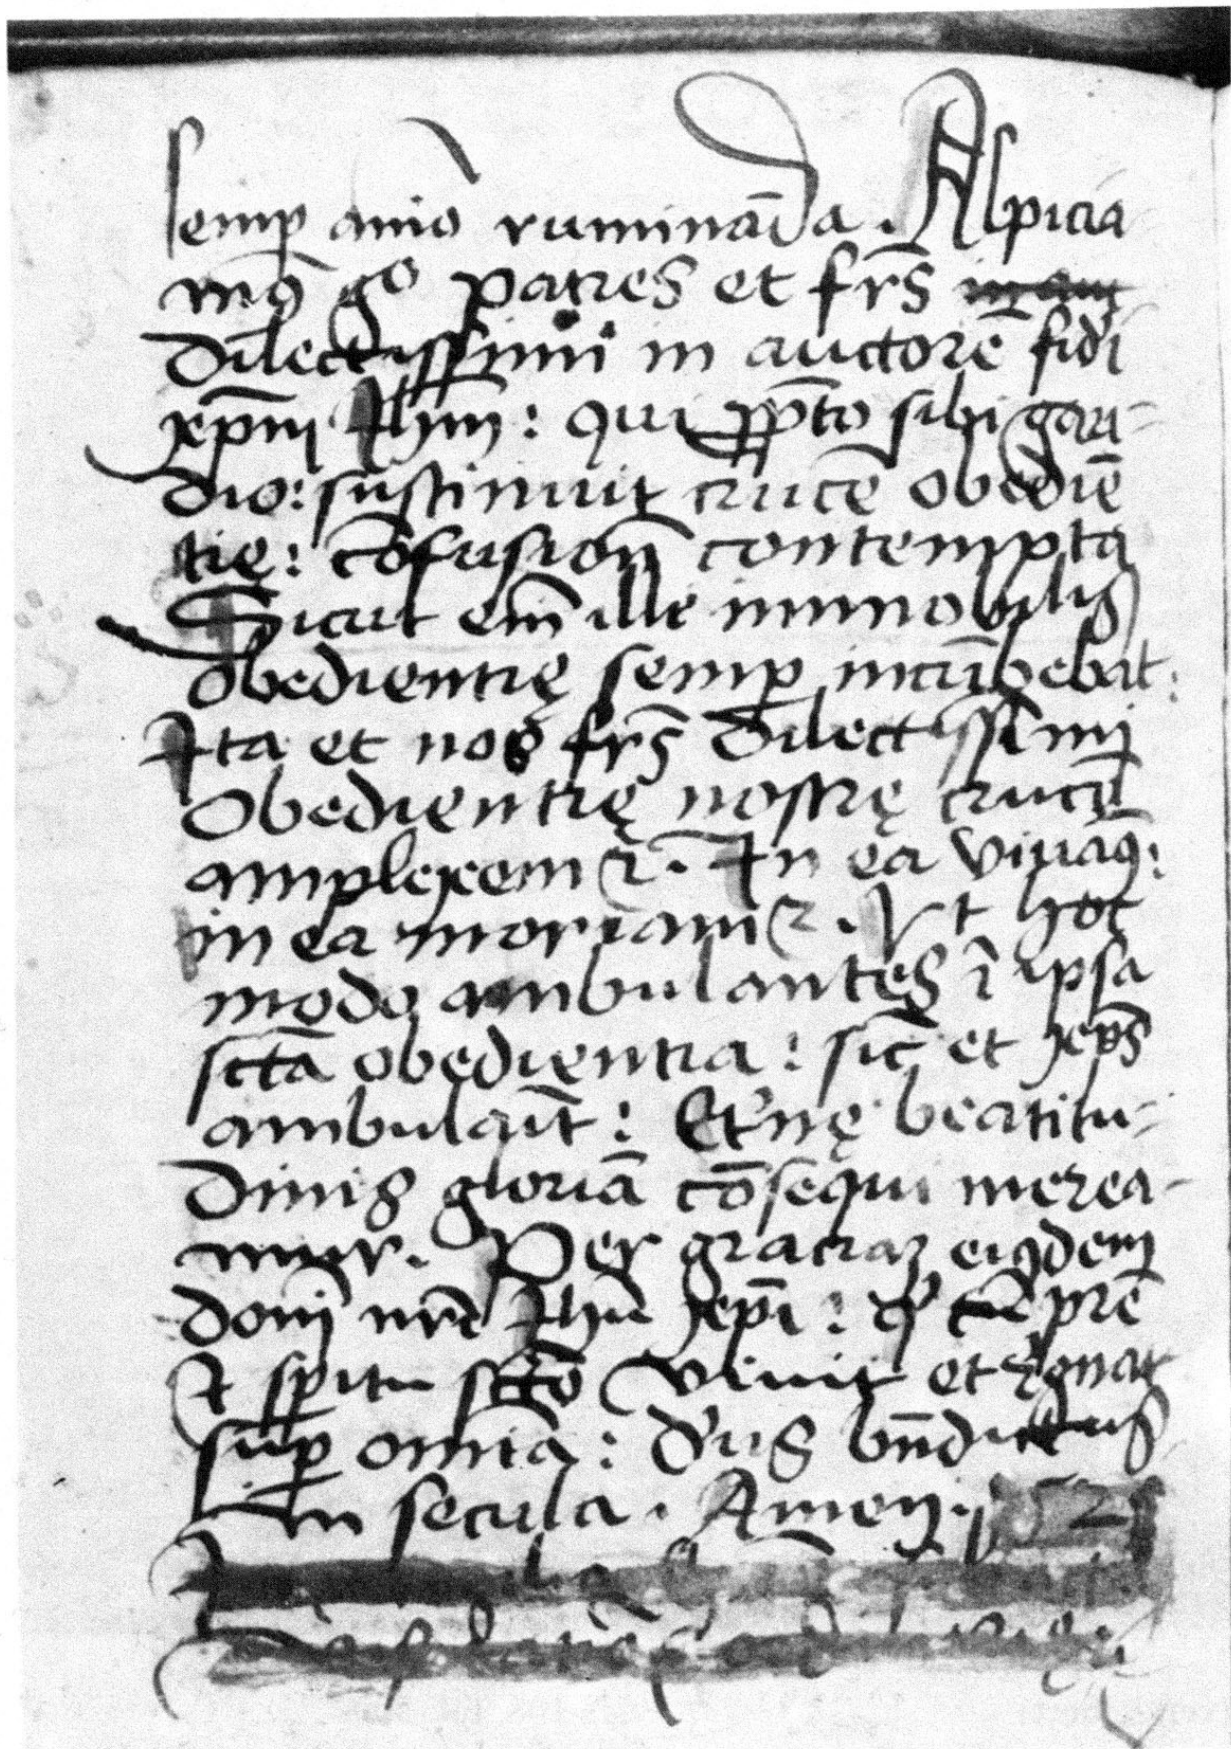 semꝑ aīo rumināda. Aspicia
mꝰ gͦ patres et fr̄s
dilectissimi in auctorē fidi
xp̄m Ihm̄: qui ꝓpo̅ito sibi gau-
dio: sustinuit crucē obediē
tię: cōfusion̄ contempta
Sicut em̄ ille immobilis
obedientię semꝑ incūbebat:
Ita et nos fr̄s dilectissimi
obedientię nostrę crucē
amplexemꝛ. In ea viuāꝰ:
in ea moriamꝛ. Vt hoc
modo ambulantes ī ipsa
sctā obedientia: sic̄ et xp̄s
ambulauit̄: Et'nę beatitu-
dinis gloriā cōsequi merea-
mur. Per graciaꝫ eiꝰdem
domī nr̄i Ihū xp̄i: qͥ cū prē
⁊ sp̄itu sctō viuit et regnat
suꝑ omīa: dēus bn̄dictus
in secula. Amen. 152